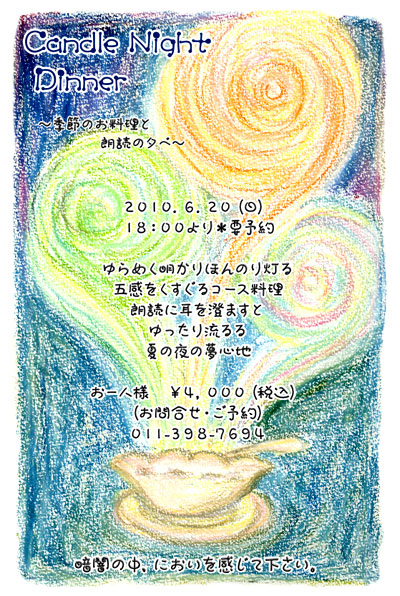 Candle Night
Dinner
～季節のお料理と
朗読の夕べ～
2010.6.20(日)
18:00より*要予約
ゆらめく明かりほんのり灯る
五感をくすぐるコース料理
朗読に耳を澄ますと
ゆったり流るる
夏の夜の夢心地
お一人様　¥4,000(税込)
(お問合せ・ご予約)
011-398-7694
暗闇の中、においを感じて下さい。